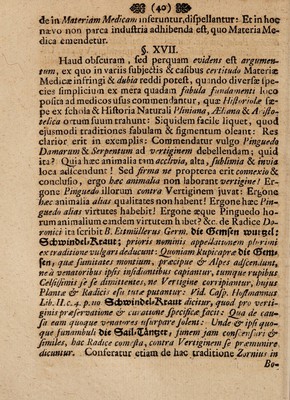 (40)
de in Materiam Medicam inseruntur, dispellantur: Et in hoc
nævo non parca industria adhibenda est, quo Materia Me-
dica emendetur.
§. XVII.
Haud obscuram, sed perquam evidens est argumen-
tum, ex quo in variis subjectis & casibus certitudo Materiæ
Medicæ infringi & dubia reddi potest, quando diversæ spe-
cies simplicium ex mera quadam fabula fundamenti loco
posita ad medicos usus commendantur, quæ Historiolæ sæ-
pe ex schola & Historia Naturali Pliniana, Æliana & Aristo-
telica ortum suum trahunt: Siquidem facile liquet, quod
ejusmodi traditiones fabulam & figmentum oleant: Res
clarior erit in exemplis: Commendatur vulgo Pinguedo
Damarum & Serpentum ad vertiginem debellandam; quid
ita? Quia hæc animalia tam acclivia, alta, sublimia & invia
loca adscendunt! Sed firma ne propterea erit connexio &
conclusio, ergo hæc animalia non laborant vertigine? Er-
gone Pinguedo illorum contra Vertiginem juvat? Ergone
hæc animalia alias qualitates non habent! Ergone hæc Pin-
guedo alias virtutes habebit! Ergone æque Pinguedo ho-
rum animalium eandem virtutem habet? &c. de Radice Do-
ronici ita scribit B. Etmüllerus Germ. die Gemsen wurtzel:
Schwindel-Kraut; prioris nominis appellationem plurimi
ex traditione vulgari deducunt: Quoniam kupicapræ die Gem-
sen, quæ summitates montium, præcipue & Alpes adscendunt,
ne à venatoribus ipsis insidiantibus capiantur, tumque rupibus
Celsissimis se se dimittentes, ne Vertigine corripiantur, hujus
Plantæ & Radicis esu tutæ putantur: Vid. Casp. Hoffmannus
Lib. II. c. 4. p. 110 Schwindel-Kraut dicitur, quod pro verti-
ginis præservatione & curatione specificæ facit: Qua de cau-
sa eam quoque venatores usurpare solent: Unde & ipsi quo-
que funambuli die Sail-Täntzer, funem jam conscensuri &
similes, hac Radice comesta, contra Vertiginem se præmunire
dicuntur. Conferatur etiam de hac traditione Zornius in
Bo-